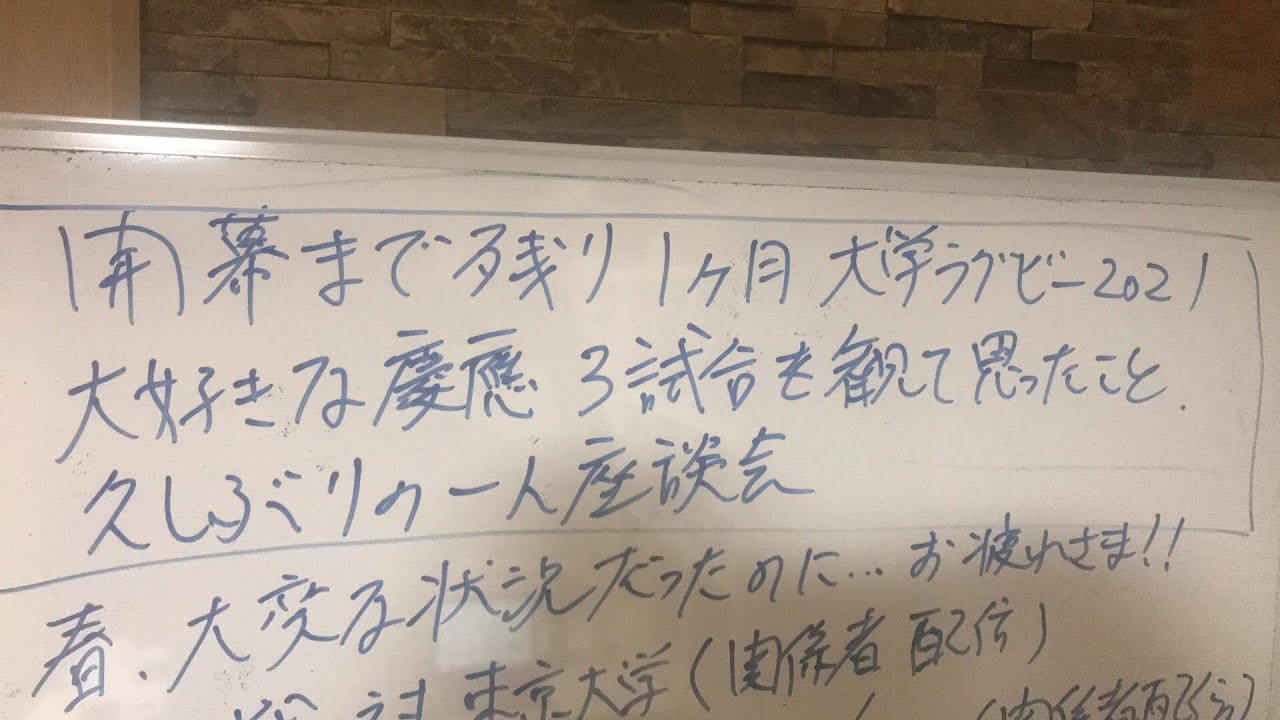 開幕まで残り1ヶ月 大学ラグビー2021
大好きな慶應 3試合を観て思ったこと.
久しぶりの一人座談会
春、大変な状況だったのに…お疲れさま!!
対 東京大学(関係者配信)
(関係者配信)